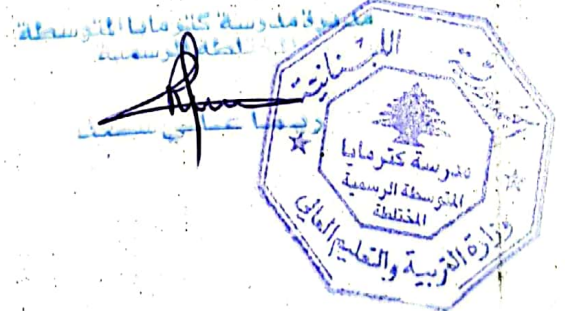 مديرة مدرسة كترمايا المتوسطة
المختلطة الرسمية
ريما
الجمهورية اللبنانية
مدرسة كترمايا
المتوسطة الرسمية
المختلطة
وزارة التربية والتعليم العالي